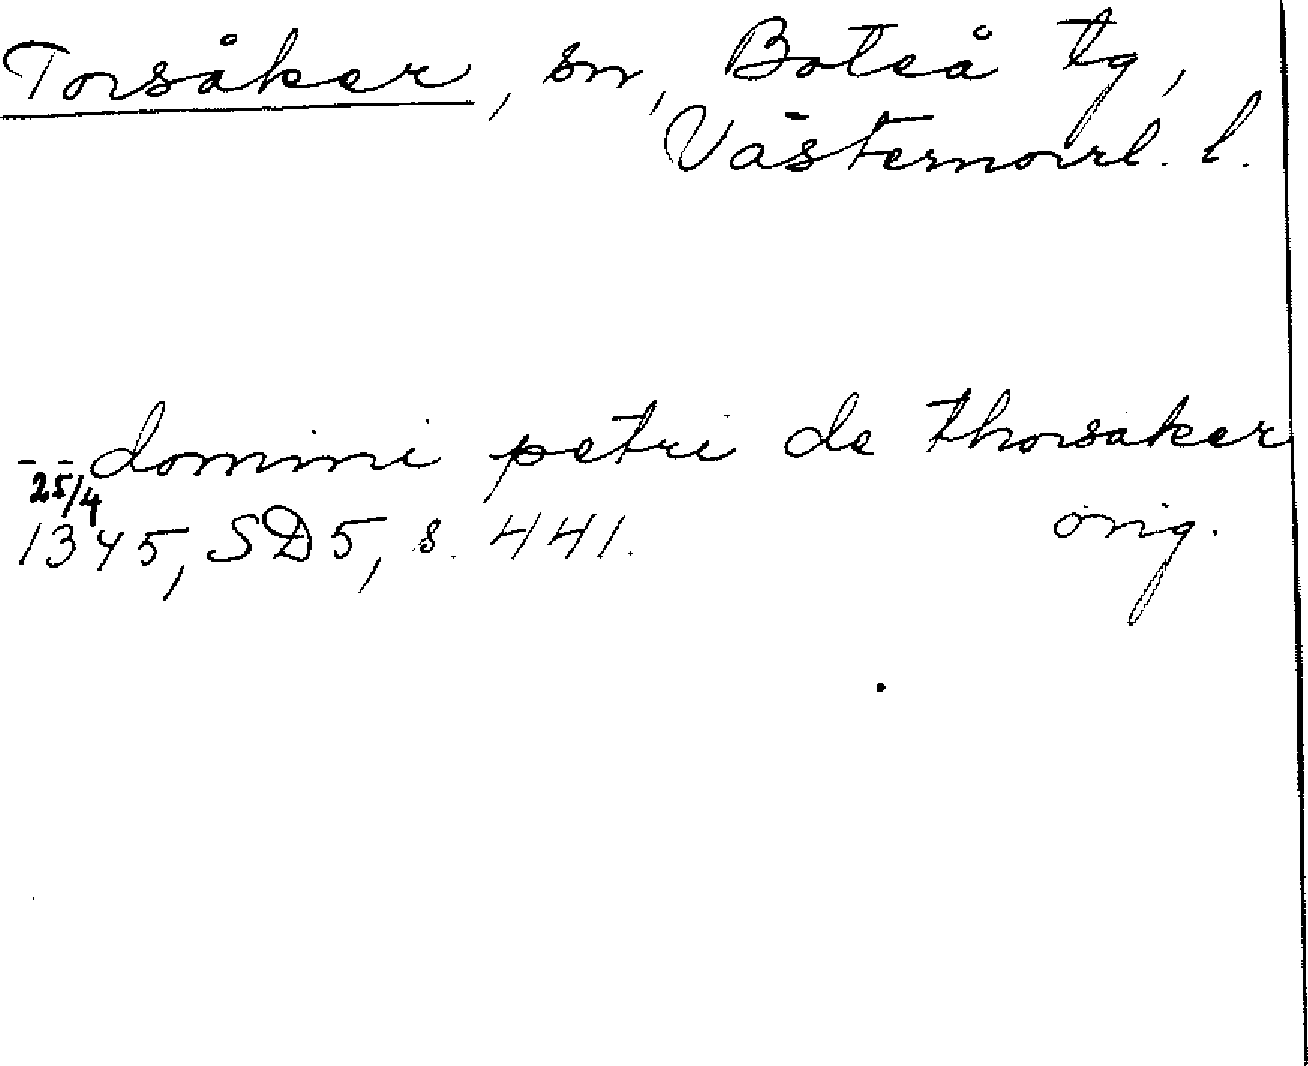 Torsåker, sn, Boteå tg,
Västernorrl. l.
-- domini petri de thorsaker
25/4
1345, SD5, s. 441. orig.